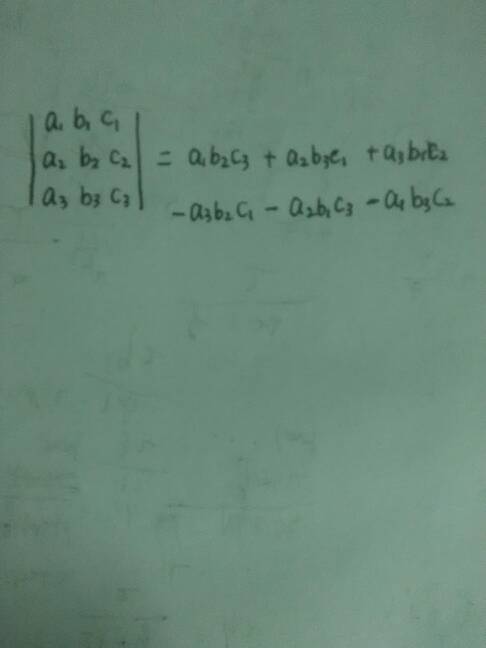 | a₁ b₁ c₁ |
| a₂ b₂ c₂ | = a₁b₂c₃ + a₂b₃c₁ + a₃b₁c₂
| a₃ b₃ c₃ | -a₃b₂c₁ - a₂b₁c₃ - a₁b₃c₂